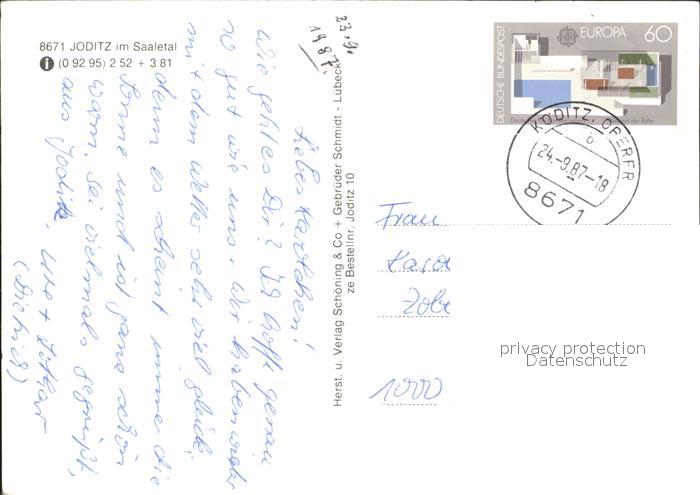 8671 JODITZ im Saaletal
i (0 92 95) 2 52 + 3 81
23.9.
1987.
Liebes Karolchen!
Wie geht es Dir? Ich hoffe genau
so gut wie uns. Wir haben wieder
mit dem Wetter sehr viel Glück,
denn es scheint immer die
Sonne und ist ganz schön
warm. Sei vielmals gegrüßt,
aus Joditz, Ute + Lothar
(Dietrich)
Herst. u. Verlag Schöning & Co + Gebrüder Schmidt - Lübeck
ze Bestellnr. Joditz 10
DEUTSCHE BUNDESPOST
EUROPA 60
KÖDITZ, OBERFR
b
24.-9.87-18
8671
Frau
Karo
Zobe
1000
privacy protection
Datenschutz